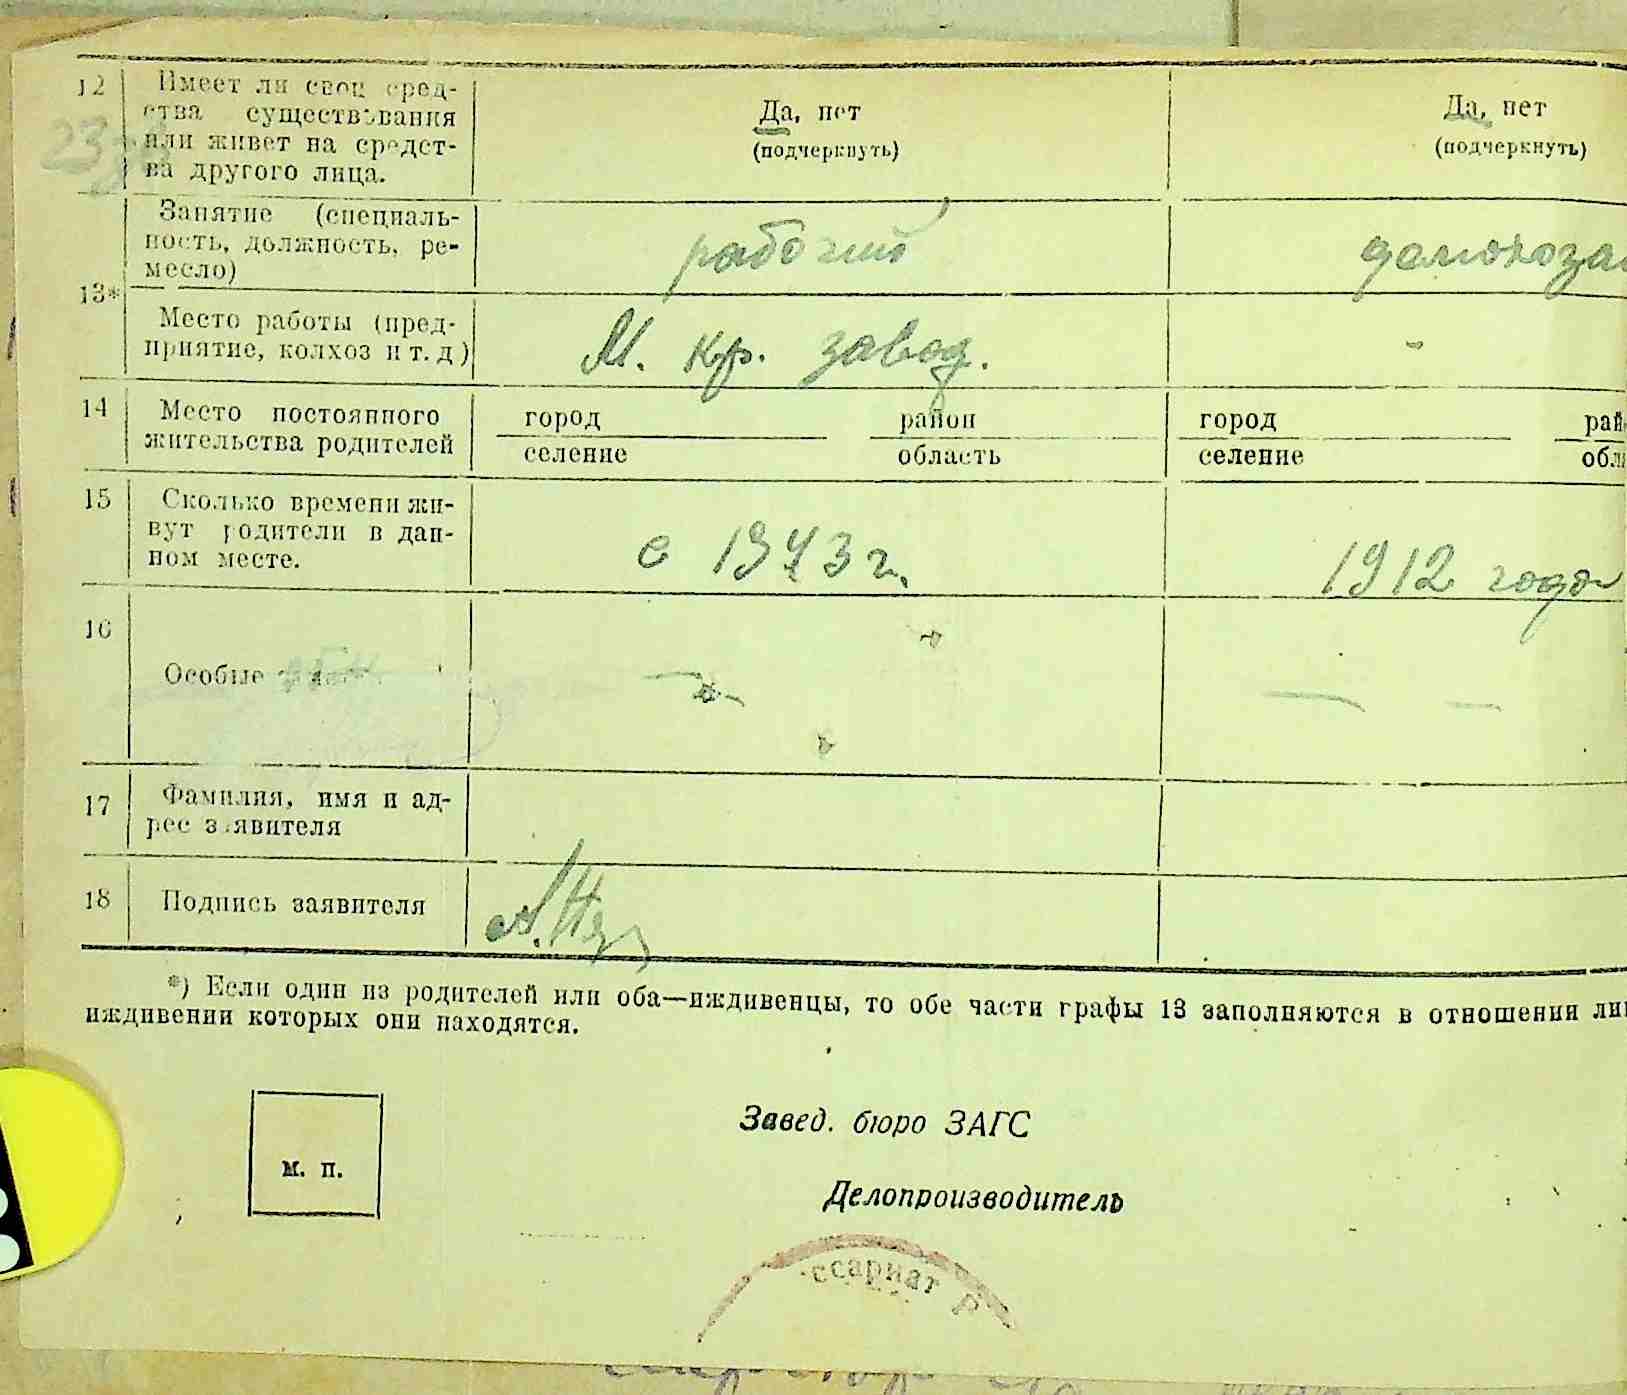 12 Имеет ли свои сред-
ства существования
или живет на средст-
ва другого лица.
Да, нет
(подчеркнуть)
Да, нет
(подчеркнуть)
23
13*
Занятие (специаль-
ность, должность, ре-
месло)
рабочий
домохозяй
Место работы (пред-
приятие, колхоз и т. д)
М. кр. завод.
-
14 Место постоянного
жительства родителей
город район
селение область
город рай
селение обл
15 Сколько времени жи-
вут родители в дан-
ном месте.
с 1943 г.
1912 года
16
Особые
17 Фамилия, имя и ад-
рес заявителя
18 Подпись заявителя
*) Если один из родителей или оба—иждивенцы, то обе части графы 13 заполняются в отношении
иждивении которых они находятся.
Завед. бюро ЗАГС
м. п.
Делопроизводитель
ссариат